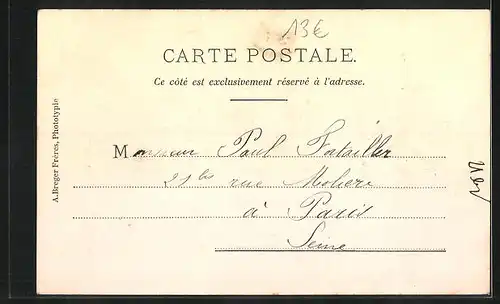 13€
CARTE POSTALE.
Ce côté est exclusivement réservé à l'adresse.
A.Breger Frères, Phototypie
Monsieur Paul Fatailler
21 bis rue Moliere
à Paris
Seine